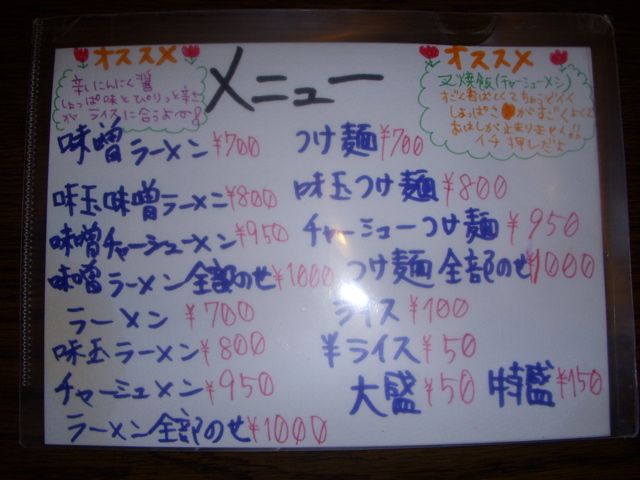 オススメ
辛しにんにく醤
しょっぱ味とぴりっと辛さ
がライスに合うよ
メニュー
オススメ
叉焼飯(チャーシューメシ)
すごく香ばしくて
しょっぱさ がすごくよくて
おはしが止まりません!!
イチ押しだよ
味噌ラーメン ¥700
味玉味噌ラーメン ¥800
味噌チャーシューメン ¥950
味噌ラーメン全部のせ ¥1000
ラーメン ¥700
味玉ラーメン ¥800
チャーシュメン ¥950
ラーメン全部のせ ¥1000
つけ麺 ¥700
味玉つけ麺 ¥800
チャーシューつけ麺 ¥950
つけ麺全部のせ ¥1000
ライス ¥100
半ライス ¥50
大盛 ¥50 特盛 ¥150